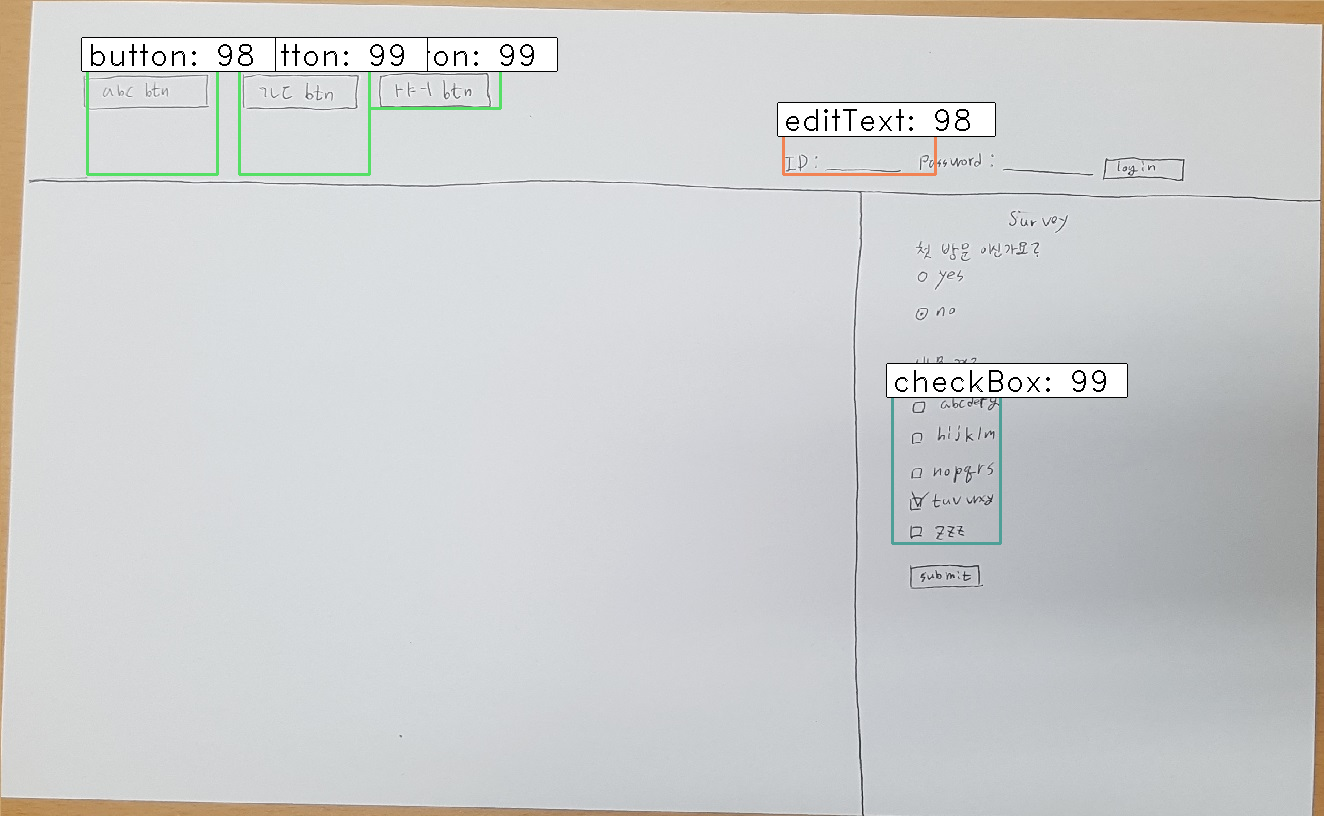 button: 98 tton: 99 on: 99
abc btn ㄱㄴㄷ btn ㅏㅑㅓ btn
editText: 98
ID: Password: login
Survey
첫 방문 이신가요?
yes
no
checkBox: 99
abcdefg
hijklm
nopqrs
tuvwxy
zzz
submit